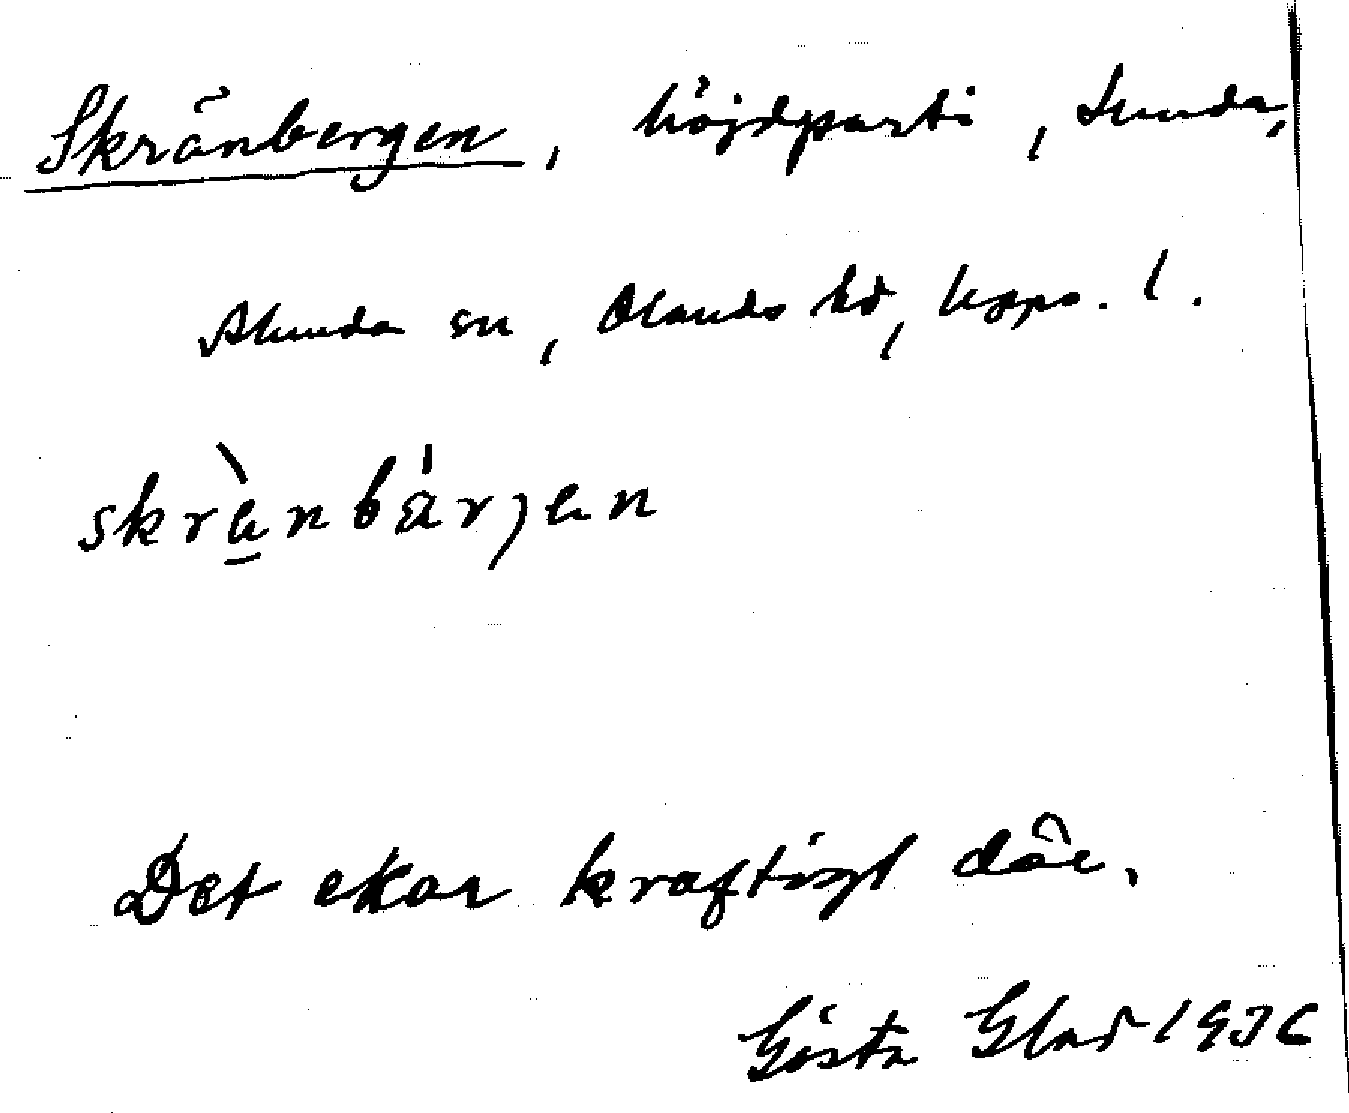 Skränbergen, höjdparti, Sunda,
Alunda sn, Olands hd, Upps. l.
skrànbárjen
Det ekar kraftigt där.
Gösta Glad 1936